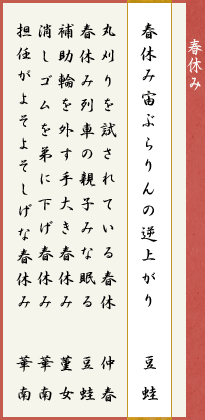 春休み
春休み宙ぶらりんの逆上がり　豆蛙
丸刈りを試されている春休　仲春
春休み列車の親子みな眠る　豆蛙
補助輪を外す手大き春休み　菫女
消しゴムを弟に下げ春休み　華南
担任がよそよそしげな春休み　華南